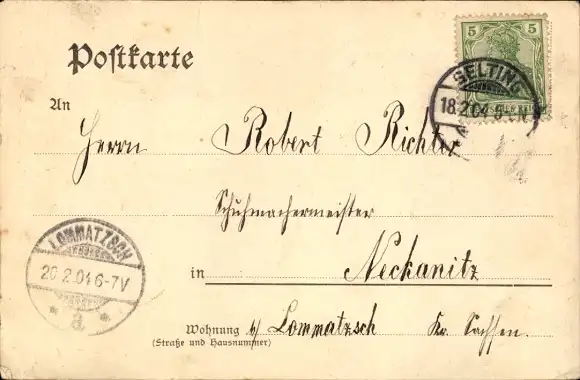 Postkarte
5 5
SELTING
18.2.04 5-6N
An
Herrn Robert Richter
Schuhmachermeister
LOMMATZSCH
20.2.04 6-7V
a.
in Neckanitz
Wohnung b/ Lommatzsch Kr. Sachsen.
(Straße und Hausnummer)